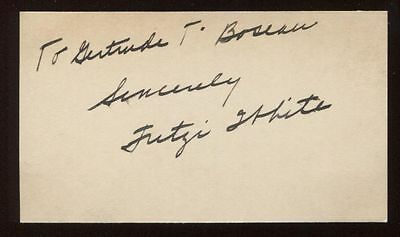 To Gertrude T. Boseau
Sincerely
Fritzi White